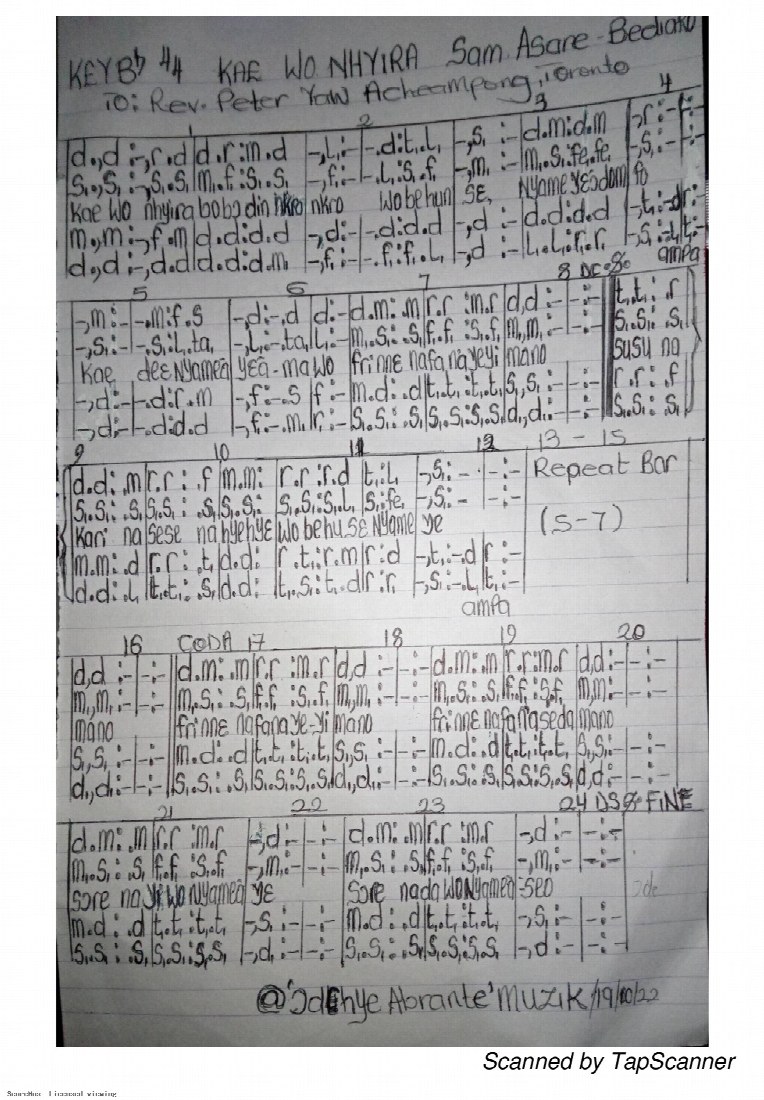 KEY Bb 4/4 KAE WO NHYIRA Sam Asare-Bediako
TO: Rev. Peter Yaw Acheampong, Toronto
1 2 3 4
d.,d :-,r.d |d.r :m.d |-,l,:- |-.d:t,.l, |-,s, :- |d.m:d.m |-,r :- |-:-
s,.,s, :-,s,.s, |m,.f, :s,.s, |-,f,:- |-.l,:s,.f, |-,m, :- |m,.s,:fe,.fe, |-,s, :- |-:-
Kae wo nhyira bobɔ din nkro nkro wobehun sɛ, Nyame yɛ dom fo
m.,m :-,f.m |d.d:d.d |-,d:- |-.d:d.d |-,d :- |d.d:d.d |-,t,:- |-.dr:-
d.,d :-,d.d |d.d:d.m |-,f,:- |-.f,:f,.l, |-,d :- |l,.l,:r.r |-,s,:- |.l,t,:-
ampa
5 6 7 8 DC
|-,m:- |-.m:f.s |-,d:- |-.d |d:- |d.m: .m |r.r :m.r |d,d :- |-:- |t,.t,: .r
|-,s,:- |-.s,:l,.ta, |-,l,:- |-.ta, |l,:- |m,.s,: .s, |f,.f, :s,.f, |m,,m, :- |-:- |s,.s,: .s,
Kae deɛ Nyameɛ yɛɛ-ma wo firi nnɛ nafa na yeyi mano susu na
|-,d:- |-.d:r.m |-,f:- |-.s |f:- |m.d: .d |t,.t, :t,.t, |s,,s, :- |-:- |r.r: .f
|-,d:- |-.d:d.d |-,f,:- |-.m, |r,:- |s,.s,: .s, |s,.s,:s,.s, |d,,d,:- |-:- |s,.s,: .s,
9 10 11 12 13 - 15
d.d: .m |r.r: .f |m.m: |r.r :r.d |t,:l, |-,s,:- |-:- |Repeat Bar
s,.s,: .s, |s,.s,: .s, |s,.s,: |s,.s,:s,.l, |s,:fe, |-,s,:- |-:- |(5-7)
Kari na sese na hyehyɛ wo behu sɛ Nyame yɛ
m.m: .d |r.r: .t, |d.d: |r.t,:r.m |r:d |-,t,:-.d |r:-
d.d: .l, |t,.t,: .s, |d.d: |t,.s,:t,.d |r:r |-,s,:-.l, |t,:-
ampa
16 CODA 17 18 19 20
d,d :- |-:- |d.m: .m |r.r :m.r |d,d :- |-:- |d.m: .m |r.r:m.r |d,d:- |-:-
m,,m, :- |-:- |m,.s,: .s, |f,.f, :s,.f, |m,,m,:- |-:- |m,.s,: .s, |f,.f,:s,.f, |m,,m,:- |-:-
mano firi nnɛ na fa na ye-yi mano firi nnɛ na fa na seda mano
s,,s, :- |-:- |m.d: .d |t,.t, :t,.t, |s,,s, :- |-:- |m.d: .d |t,.t,:t,.t, |s,,s,:- |-:-
d,,d,:- |-:- |s,.s,: .s, |s,.s,:s,.s, |d,,d,:- |-:- |s,.s,: .s, |s,.s,:s,.s, |d,,d,:- |-:-
21 22 23 24 DS FINE
d.m: .m |r.r :m.r |-,d:- |-:- |d.m: .m |r.r :m.r |-,d :- |-:-
m,.s,: .s, |f,.f, :s,.f, |-,m,:- |-:- |m,.s,: .s, |f,.f, :s,.f, |-,m,:- |-:-
Sɔre na yi wo Nyameɛ yɛ Sɔre na da wo Nyameɛ-seɔ
m.d: .d |t,.t, :t,.t, |-,s,:- |-:- |m.d: .d |t,.t, :t,.t, |-,s,:- |-:-
s,.s,: .s, |s,.s,:s,.s, |-,d,:- |-:- |s,.s,: .s, |s,.s,:s,.s, |-,d,:- |-:-
@'Ɔdehye Abrante' MUZIK/19/10/22
Scanned by TapScanner